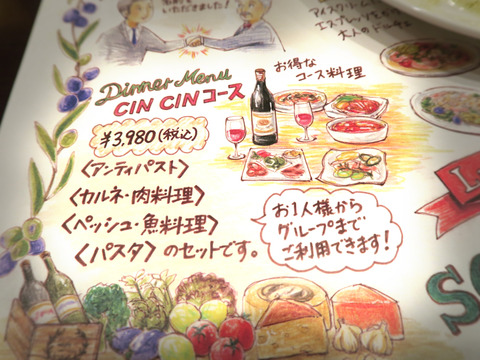 いただきました!
アイスクリームを
エスプレッソをかけ
大人のドルチェ
Dinner Menu
CIN CINコース
¥3,980(税込)
お得な
コース料理
〈アンティパスト〉
〈カルネ・肉料理〉
〈ペッシュ・魚料理〉
〈パスタ〉のセットです。
お1人様から
グループまで
ご利用できます!